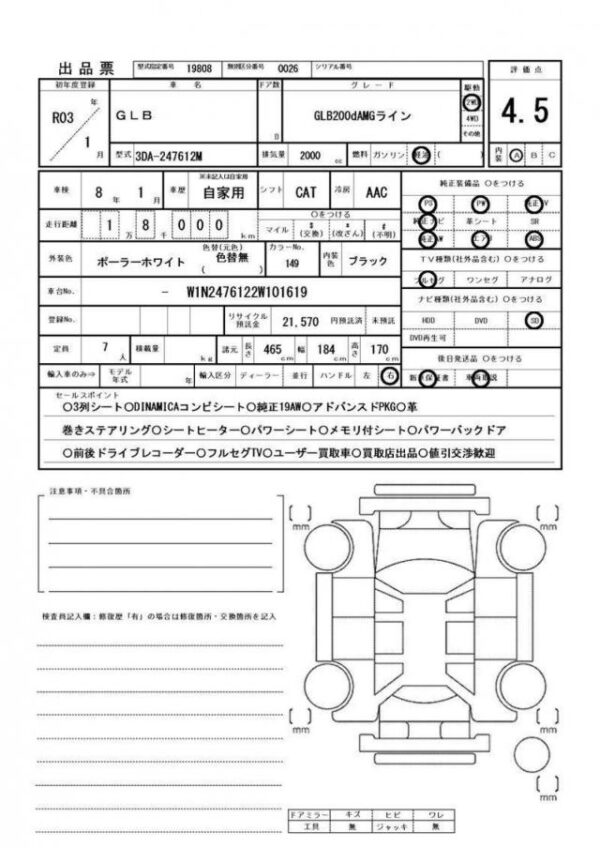 出品票 型式指定番号 19808 類別区分番号 0026 シリアル番号
評価点
初年度登録 車名 ドア数 グレード 駆動
R03 年 1 月
GLB
D
GLB200dAMGライン
2WD
4WD
その他
4.5
型式 3DA-247612M 排気量 2000 cc 燃料 ガソリン 軽油 (
内装 A B C
車検 8 年 1 月 車歴 ※未記入は自家用 自家用 シフト CAT 冷房 AAC
純正装備品 〇をつける
PS PW 純正TV
純正ナビ 革シート SR
純正AW エアB ABS
走行距離 1 万 8 千 0 0 0 km
〇をつける
マイル $ (交換) * (改ざん) # (不明)
TV種類(社外品含む) 〇をつける
フルセグ ワンセグ アナログ
外装色 ポーラーホワイト 色替(元色) 色替無 ( ) カラーNo. 149 内装色 ブラック
ナビ種類(社外品含む) 〇をつける
HDD DVD SD
DVD再生可
車台No. - W1N2476122W101619
登録No. リサイクル預託金 21,570 円預託済 未預託
定員 7 人 積載量 kg 諸元 長さ 465 cm 幅 184 cm 高さ 170 cm
後日発送品 〇をつける
新車保証書 車両取説
輸入車のみ⇒ モデル年式 年 輸入区分 ディーラー 並行 ハンドル 左 右
セールスポイント
〇3列シート〇DINAMICAコンビシート〇純正19AW〇アドバンスドPKG〇革
巻きステアリング〇シートヒーター〇パワーシート〇メモリ付シート〇パワーバックドア
〇前後ドライブレコーダー〇フルセグTV〇ユーザー買取車〇買取店出品〇値引交渉歓迎
注意事項・不具合箇所
[ ] mm
[ ] mm
検査員記入欄：修復歴「有」の場合は修復箇所・交換箇所を記入
[ ] mm
[ ] mm
[ ] mm
ドアミラー キズ ヒビ ワレ
工具 無 ジャッキ 無